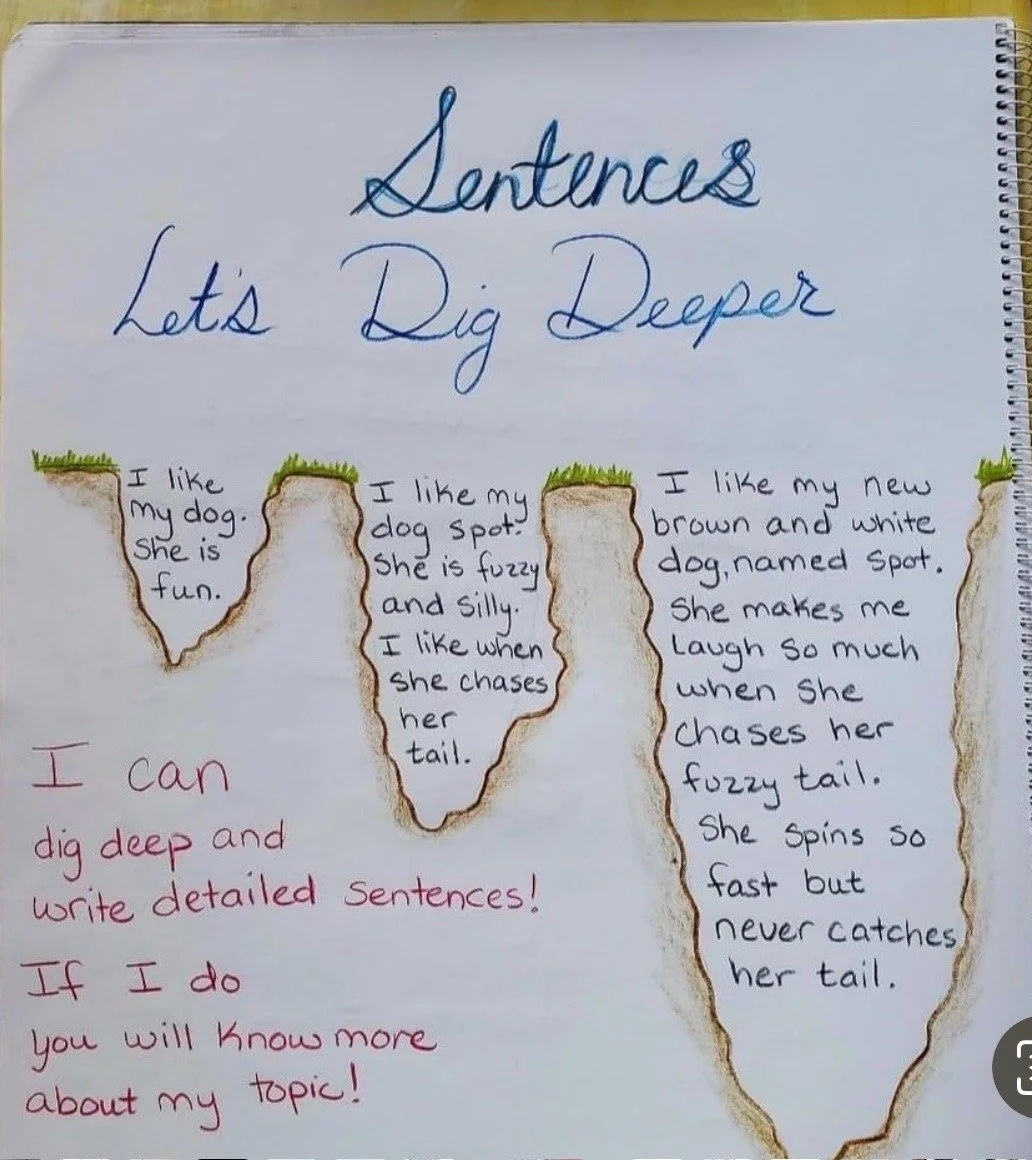 Sentences
Let's Dig Deeper
I like
my dog.
She is
fun.
I like my
dog spot.
She is fuzzy
and silly.
I like when
she chases
her
tail.
I like my new
brown and white
dog, named Spot.
She makes me
laugh so much
when she
chases her
fuzzy tail.
She spins so
fast but
never catches
her tail.
I can
dig deep and
write detailed sentences!
If I do
you will know more
about my topic!